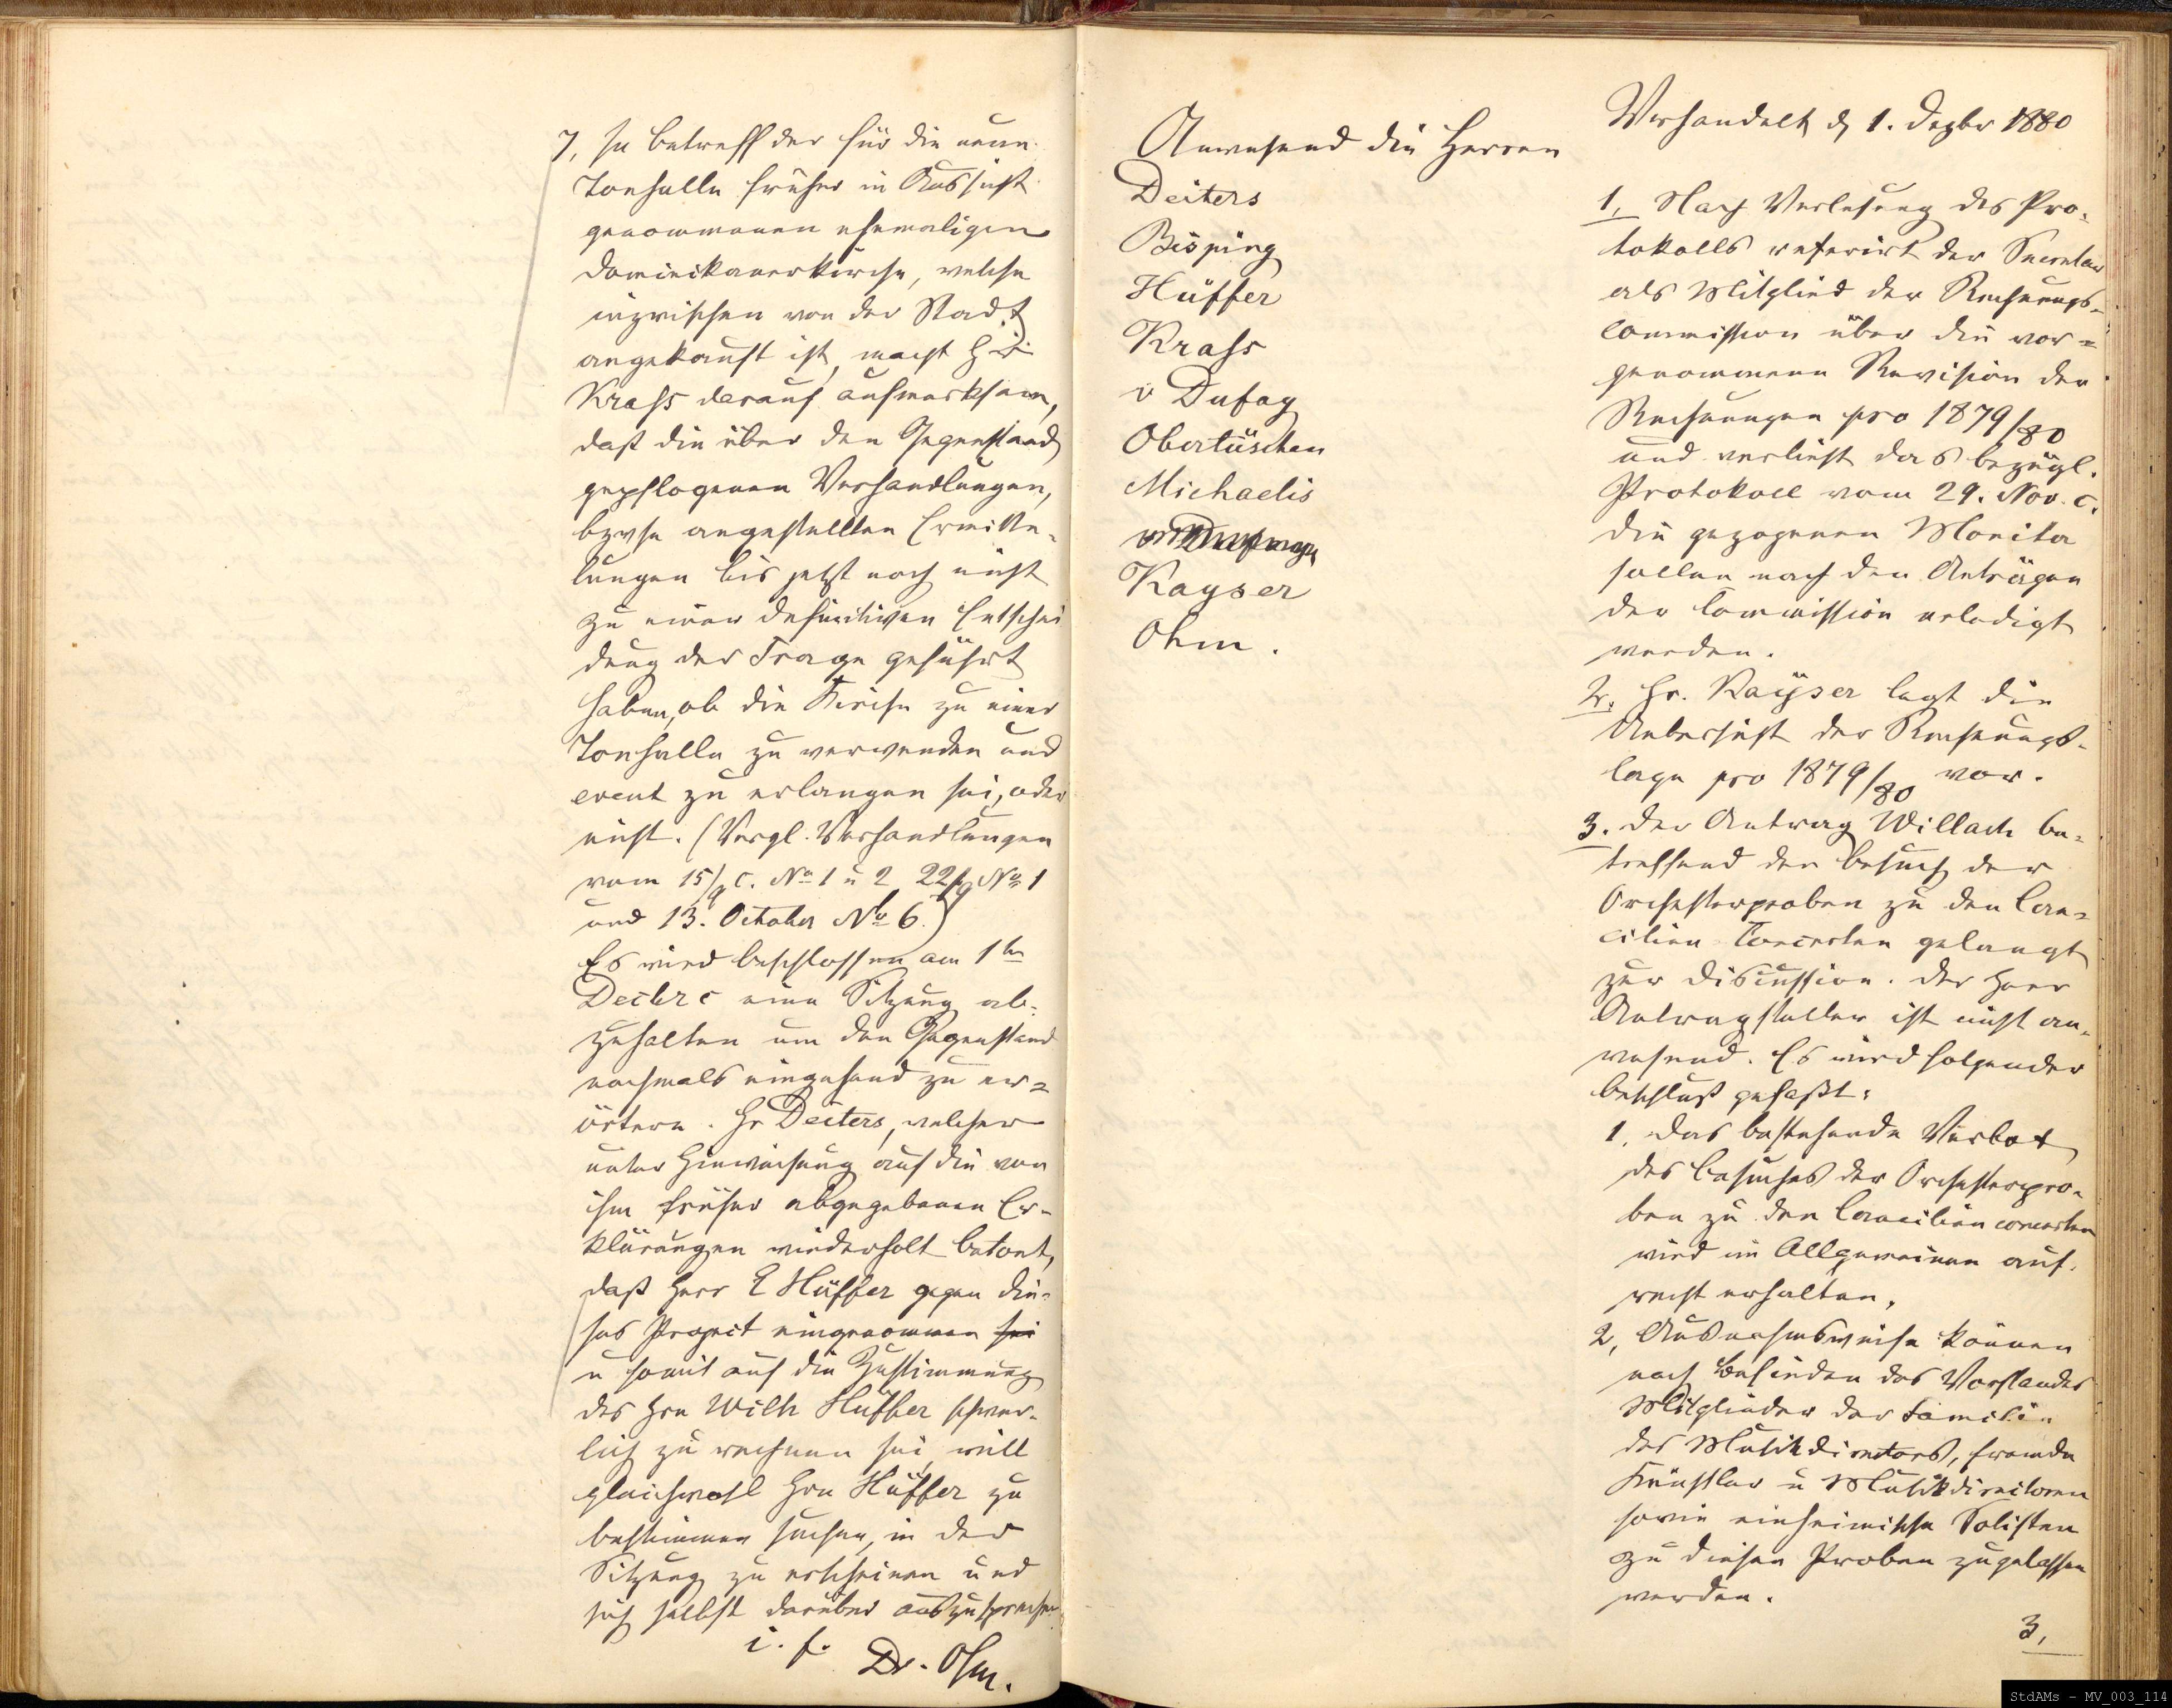 7, In betreff der für die neue
Tonhalle früher in Aussicht
genommenen ehemaligen
Dominikanerkirche, welche
inzwischen von der Stadt
angekauft ist, macht Hr
Krass darauf aufmerksam,
daß die über den Gegenstand
gepflogenen Verhandlungen,
bzwse angestellten Ermitte-
lungen bis jetzt noch nicht
zu einer definitiven Entschei
dung der Frage geführt
haben, ob die Kirche zu einer
Tonhalle zu verwenden und
event zu erlangen sei, oder
nicht. (Vergl. Verhandlungen
vom 15/9 c. No 1 u 2 22/9 No 1
und 13. October No 6.)
Es wird beschlossen am 1ten
Decbr c eine Sitzung ab-
zuhalten um den Gegenstand
nochmals eingehend zu er=
örtern. Hr Deiters, welcher
unter Hinweisung auf die von
ihm früher abgegebenen Er-
klärungen wiederholt betont,
daß Herr E Hüffer gegen die-
ses Project eingenommen sei
u somit auf die Zustimmung
des Hrn Wilh Hüffer schwer-
lich zu rechnen sei, will
gleichwohl Hrn Hüffer zu
bestimmen suchen, in der
Sitzung zu erscheinen und
sich selbst darüber auszusprechen.
i. f.
Dr. Ohm.
Anwesend die Herren
Deiters
Bisping
Hüffer
Krass
v Dufay
Obertüschen
Michaelis
Kayser
Ohm.
Verhandelt d 1. Dezbr 1880
1, Nach Verlesung des Pro-
tokolls referirt der Secretar
als Mitglied der Rechnungs-
Commission über die vor=
genommene Revision der
Rechnungen pro 1879/80
und verliest das bezügl.
Protokoll vom 29. Nov. c.
Die gezogenen Monita
sollen nach den Anträgen
der Commission erledigt
werden.
2. Hr. Kayser legt die
Uebersicht der Rechnungs-
lage pro 1879/80 vor.
3. Der Antrag Willach be-
treffend den Besuch der
Orchesterproben zu den Cae-
cilien Concerten gelangt
zur Discussion. Der Herr
Antragsteller ist nicht an-
wesend. Es wird folgender
Beschluß gefaßt:
1. Das bestehende Verbot
des Besuches der Orchesterpro-
ben zu den Caecilien concerten
wird im Allgemeinen auf-
recht erhalten,
2, Ausnahmsweise können
nach Befinden des Vorstandes
Mitglieder der Familie
des Musikdirectors, fremde
Künstler u Musikdirectoren
sowie einheimische Solisten
zu diesen Proben zugelassen
werden.
3,
StdAMs - MV_003_114